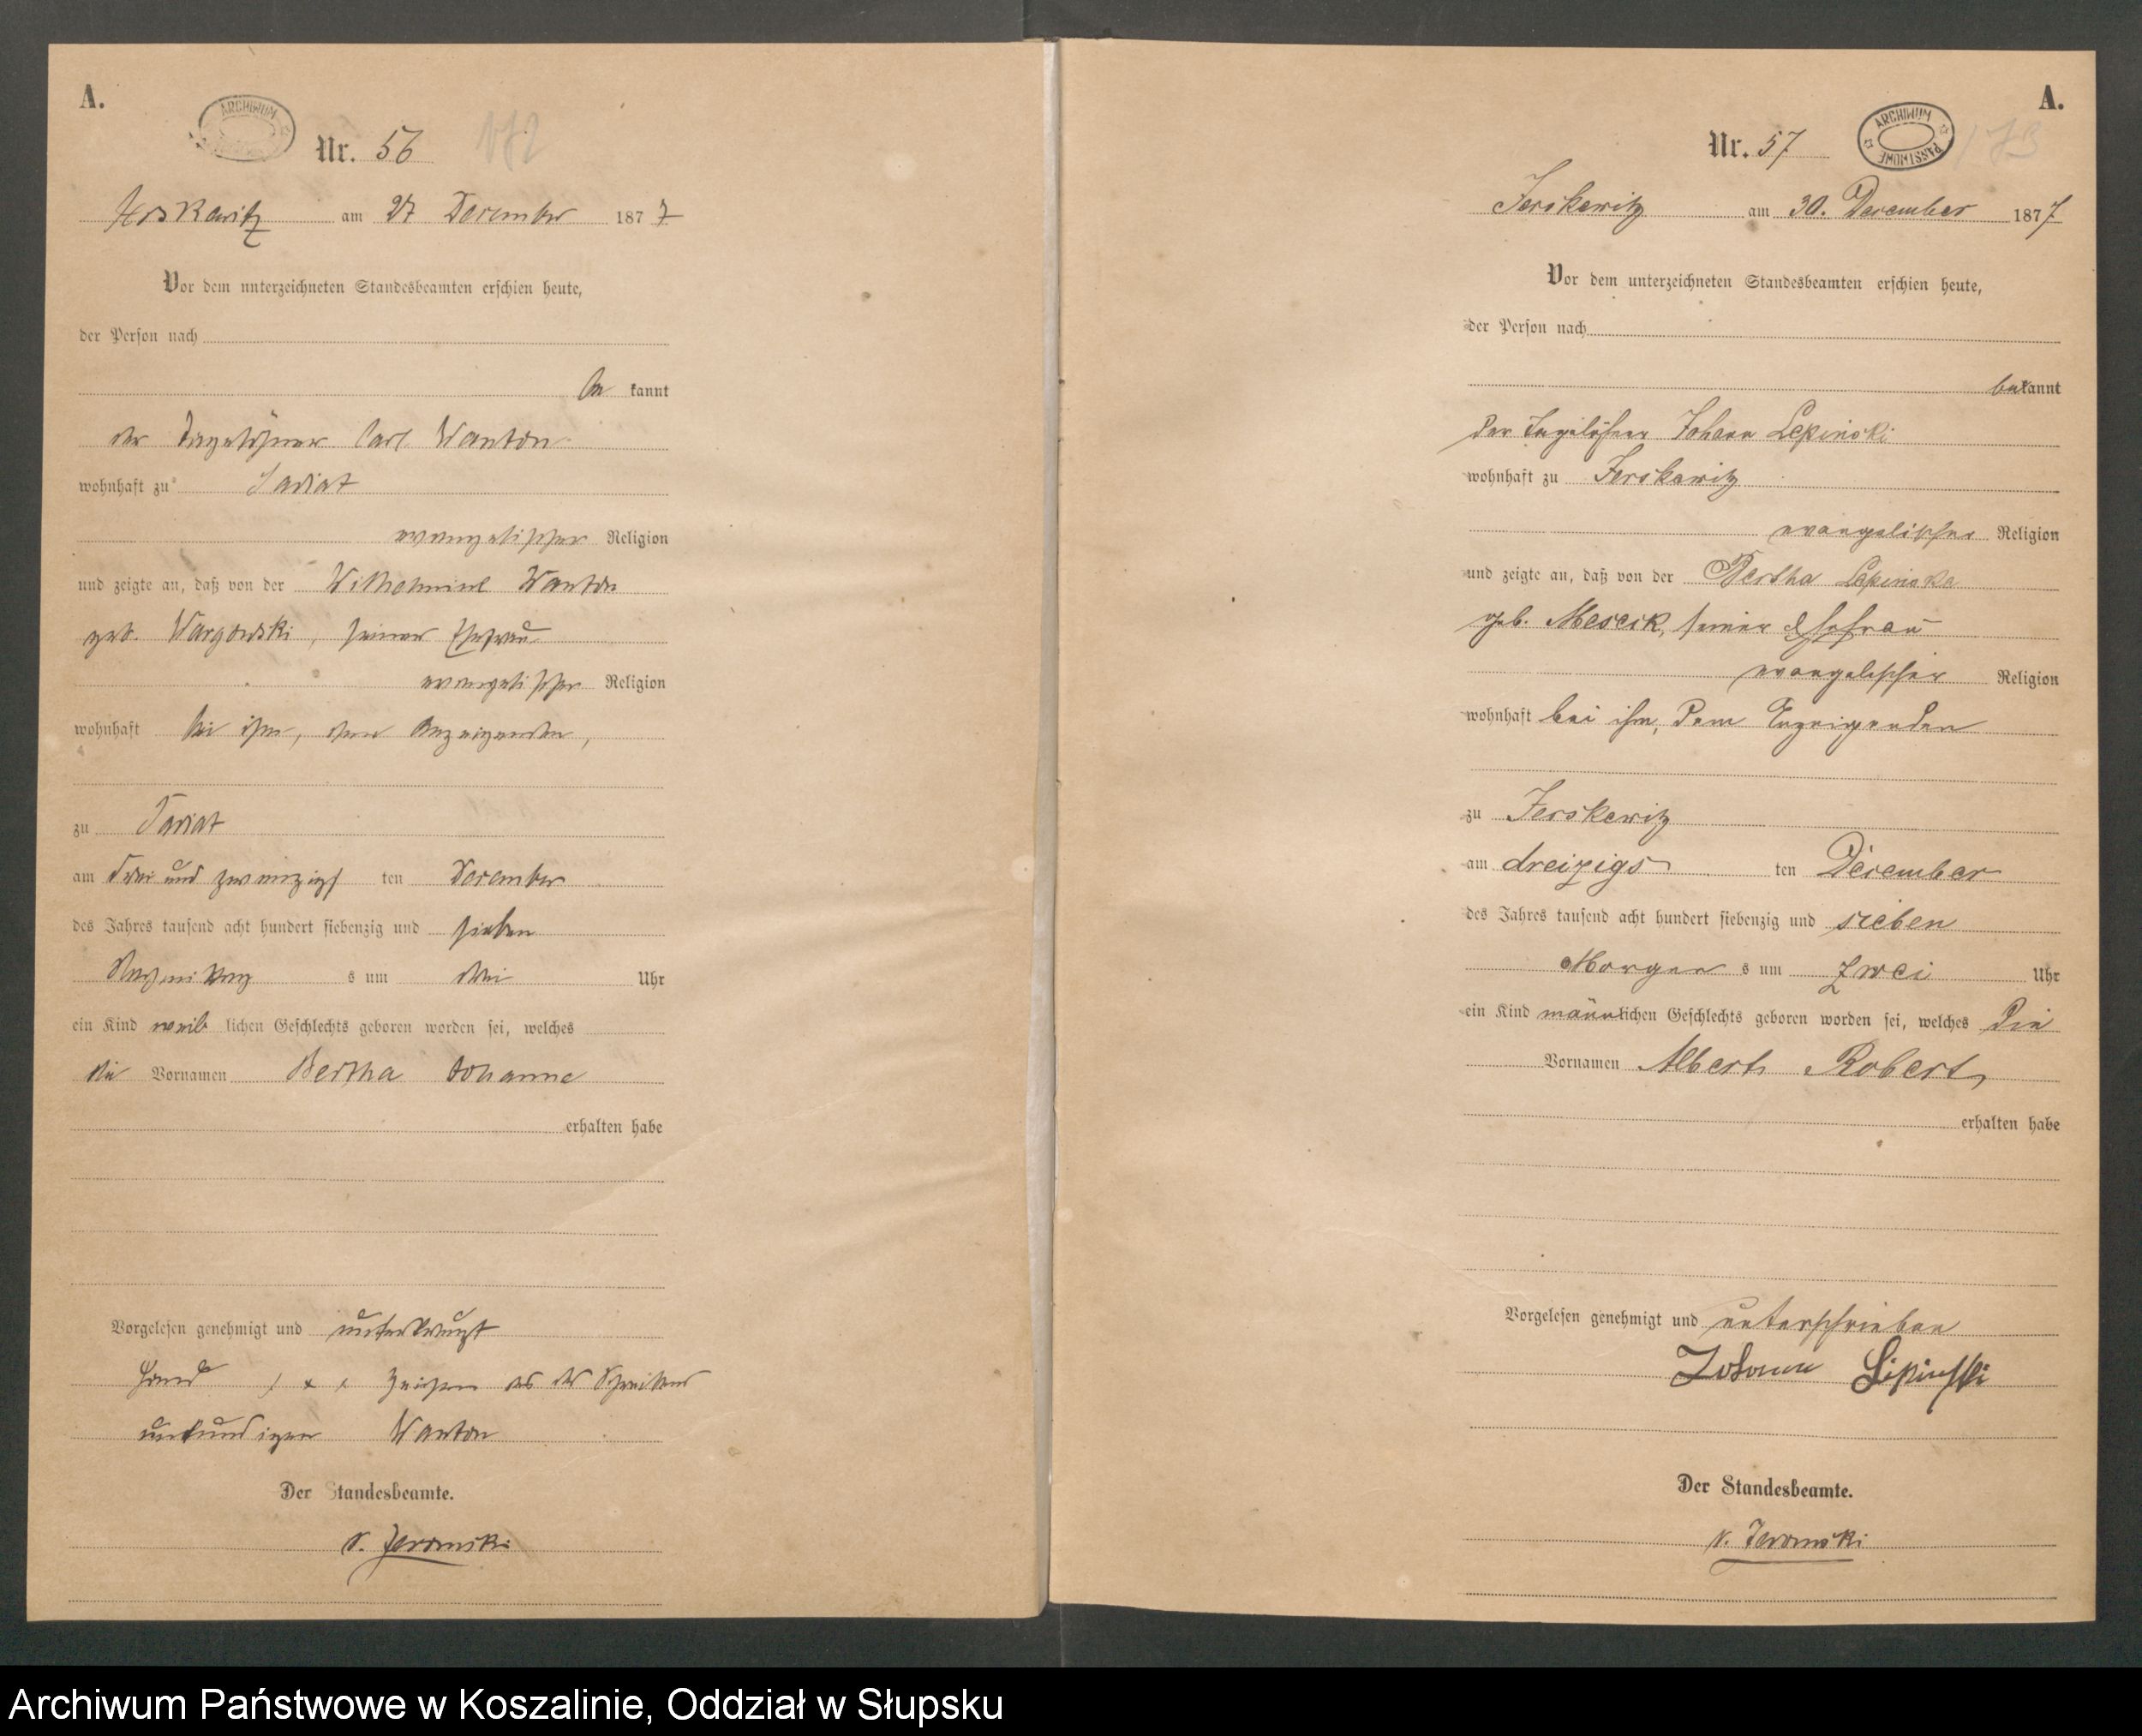 A.
ARCHIWUM
Nr. 56 172
Jerskewitz am 27 December 1877
Vor dem unterzeichneten Standesbeamten erschien heute,
der Person nach
be kannt
der Tagelöhner Carl Wanton
wohnhaft zu Sadiat
evangelischer Religion
und zeigte an, daß von der Wilhelmine Wanton
geb. Wargowski, seiner Ehefrau
evangelischer Religion
wohnhaft bei ihm, dem Anzeigenden,
zu Sadiat
am drei und zwanzigs ten December
des Jahres tausend acht hundert siebenzig und sieben
Nachmittag s um drei Uhr
ein Kind weib lichen Geschlechts geboren worden sei, welches
die Vornamen Bertha Johanne
erhalten habe
Vorgelesen genehmigt und unterkreuzt
Hand x x x Zeichen des der Schreibens
unkundigen Wanton
Der Standesbeamte.
v. Jeromski
A.
Nr. 57 173
ARCHIWUM PAŃSTWOWE
Jerskewitz am 30. December 1877
Vor dem unterzeichneten Standesbeamten erschien heute,
der Person nach
bekannt
der Tagelöhner Johann Lepinski
wohnhaft zu Jerskewitz
evangelischer Religion
und zeigte an, daß von der Bertha Lepinska
geb. Mescik, seiner Ehefrau
evangelischer Religion
wohnhaft bei ihm, dem Anzeigenden
zu Jerskewitz
am dreizigs ten December
des Jahres tausend acht hundert siebenzig und sieben
Morgen s um zwei Uhr
ein Kind männlichen Geschlechts geboren worden sei, welches die
Vornamen Albert Robert
erhalten habe
Vorgelesen genehmigt und unterschrieben
Johann Lipinski
Der Standesbeamte.
v. Jeromski
Archiwum Państwowe w Koszalinie, Oddział w Słupsku